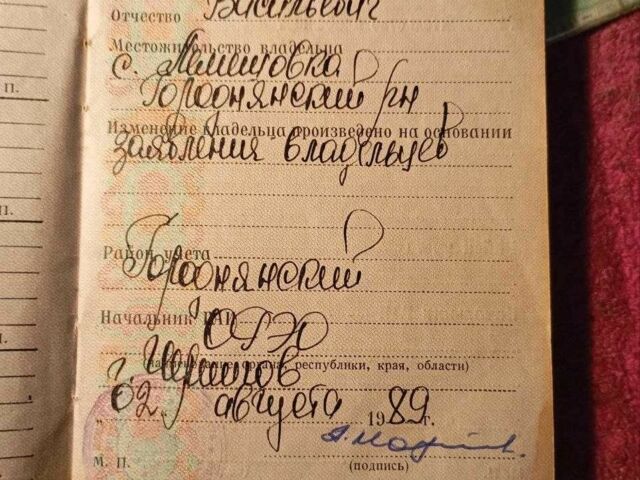 Отчество Васильевич
Местожительство владельца
с.
Городнянский р/н
Изменение владельца произведено на основании
заявления владельцев
Район учета
Городнянский
Начальник РАИ ОГЭО
г. Чернигов
(наименование органа, республики, края, области)
"02" августа 1989 г.
М. П.
(подпись)
П.
П.